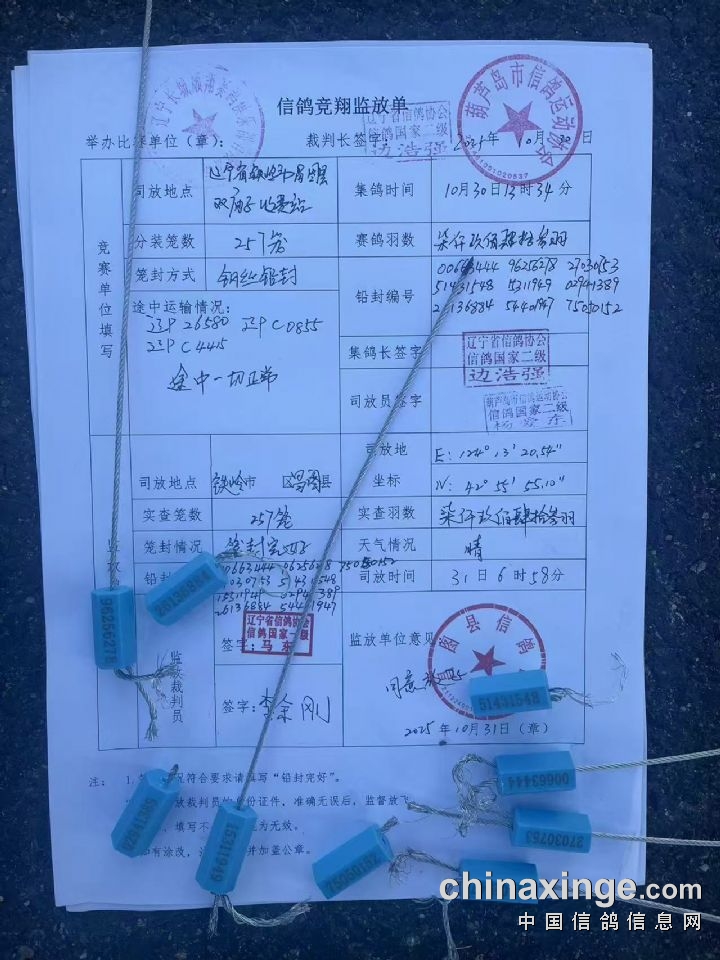 信鸽竞翔监放单
葫芦岛市信鸽运动协会
辽宁省信鸽协会
信鸽国家二级
边浩强
举办比赛单位（章）： 裁判长签字 2025年10月30日
竞赛单位填写
司放地点 辽宁省铁岭市昌图县
双庙子收费站
集鸽时间 10月30日13时34分
分装笼数 257笼 赛鸽羽数 柒仟玖佰肆拾叁羽
笼封方式 钢丝铅封
铅封编号 00663444 96256278 27030753
51431548 15311949 02941389
26136884 54401947 75050152
途中运输情况：
辽P 26580 辽P C0855
辽P C4415
途中一切正常
集鸽长签字 辽宁省信鸽协会
信鸽国家二级
边浩强
司放员签字 葫芦岛市信鸽运动协会
信鸽国家二级
司放地点 铁岭市 区昌图县
司放地
坐标
E: 124° 13' 20.54"
N: 42° 55' 55.10"
实查笼数 257笼 实查羽数 柒仟玖佰肆拾叁羽
笼封情况 笼封完好 天气情况 晴
司放时间 31日6时58分
辽宁省信鸽协会
信鸽国家一级
签字：马东
监放裁判员
签字：李余刚
监放单位意见
昌图县信鸽
同意放飞
2025年10月31日（章）
注：
况符合要求请填写“铅封完好”。
放裁判员 份证件，准确无误后，监督放飞
填写不 为无效。
有涂改， 并加盖公章。
96256278
26136884
51431548
00663444
27030753
15311949
chinaxinge.com
中国信鸽信息网